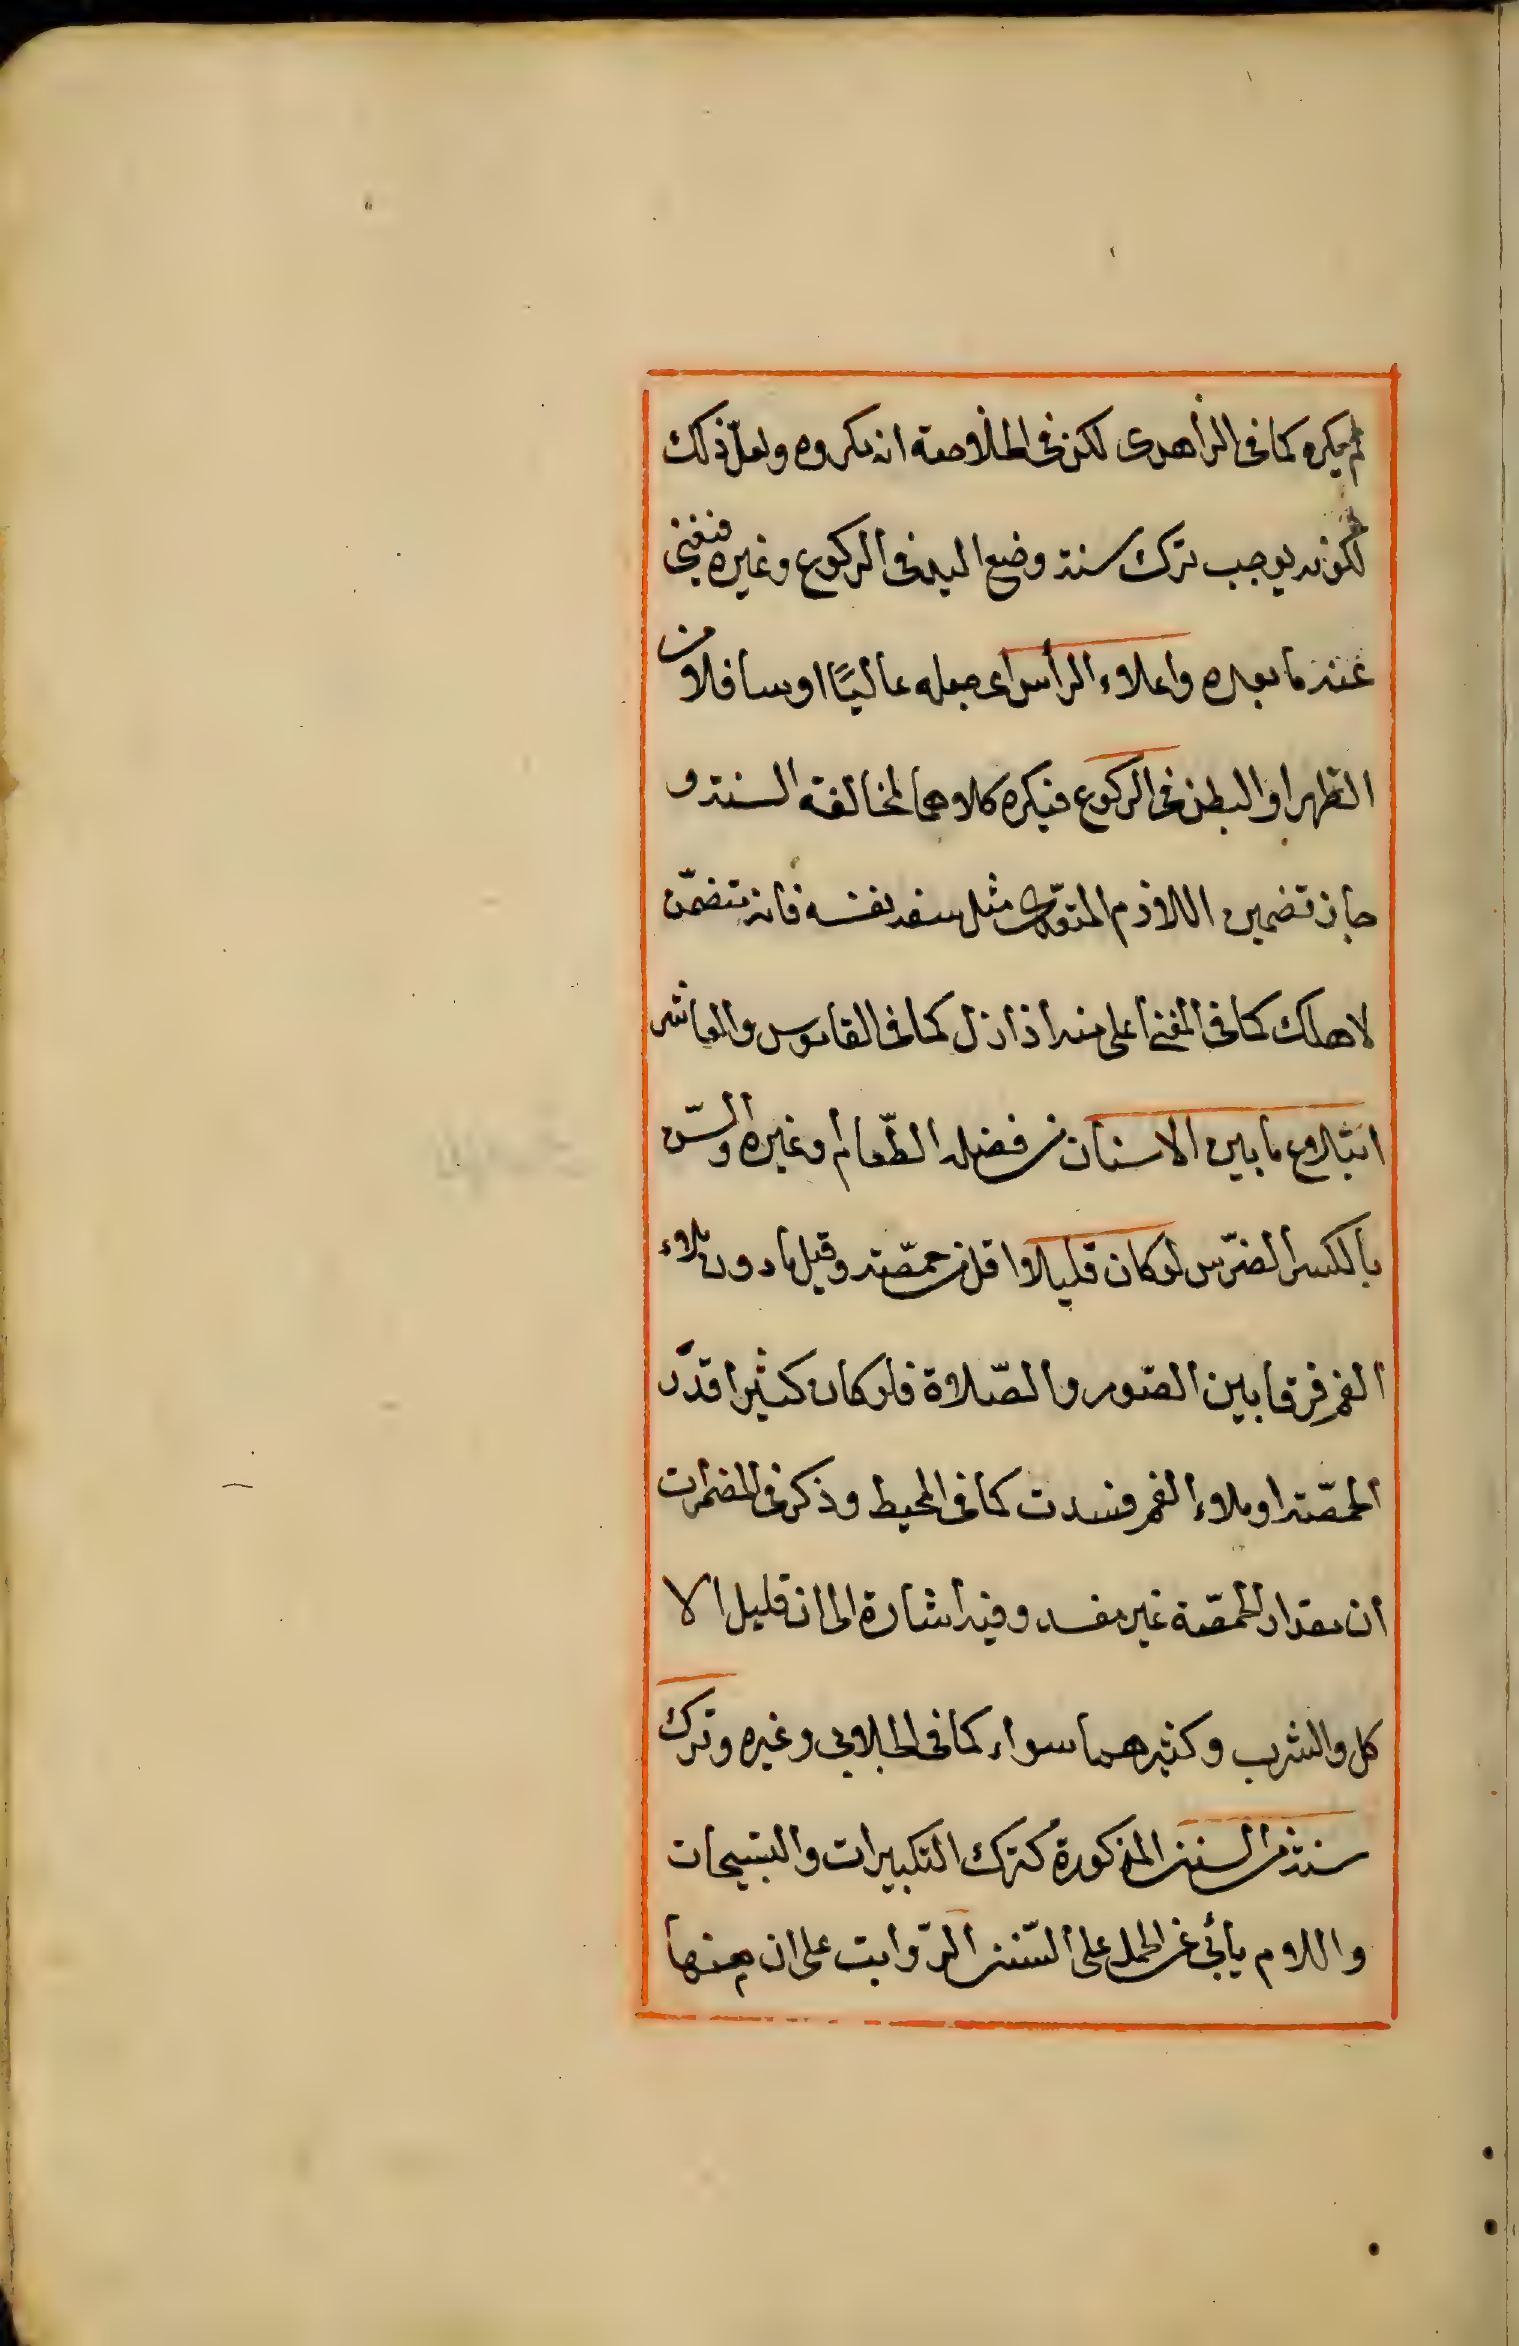 لم يكره كما فى الزاهدى لكن فى الخلاصة انه مكروه ولعل ذلك
لكونه يوجب ترك سنة وضع اليد فى الركوع وغيره فيغنى
عنه ما بعده واعلاء الرأس اى جعله عاليًا او سافلا من
الظهر او البطن فى الركوع فيكره كلاهما لمخالفة السنة و
جاز تضمين اللازم المتعدى مثل سفه نفسه فانه تتضمن
لاهلك كما فى المغنى اعلى منه اذا نزل كما فى القاموس والعاشر
ابتلاع ما بين الاسنان من فضلة الطّعام وغيره والسّن
بالكسر الضرّس لو كان قليلا اقل من حمّصة وقيل ما دون ملاء
الفم فرقا بين الصّوم والصّلاة فلو كان كثيرا قدر
الحمّصة او ملاء الفم فسدت كما فى المحيط وذكر فى المضمرات
ان مقدار الحمّصة غير مفسد وفيه اشارة الى ان قليل الا
كل والشرب وكثيرهما سواء كما فى الجلابى وغيره وترك
سنة من السنن المذكورة كترك التكبيرات والتسبيحات
واللام يأبى عن الحمل على السّنن الرّواتب على ان بعضها